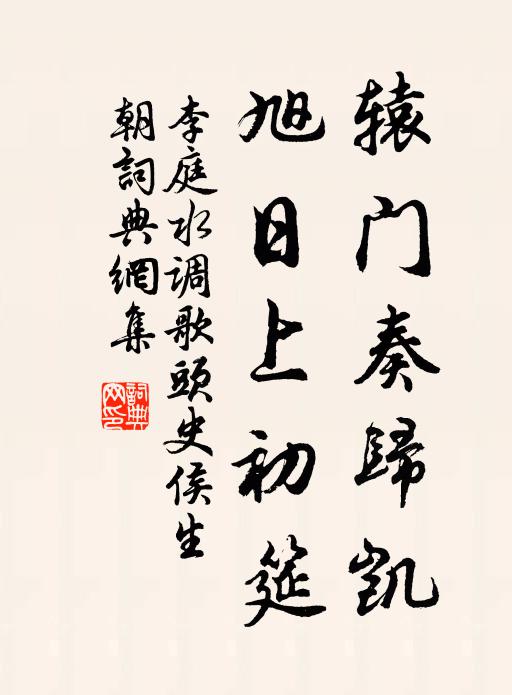 辕门奏歸凯
旭日上初筵
李庭水调歌頭史侯生
朝詞典網集
詞典网印